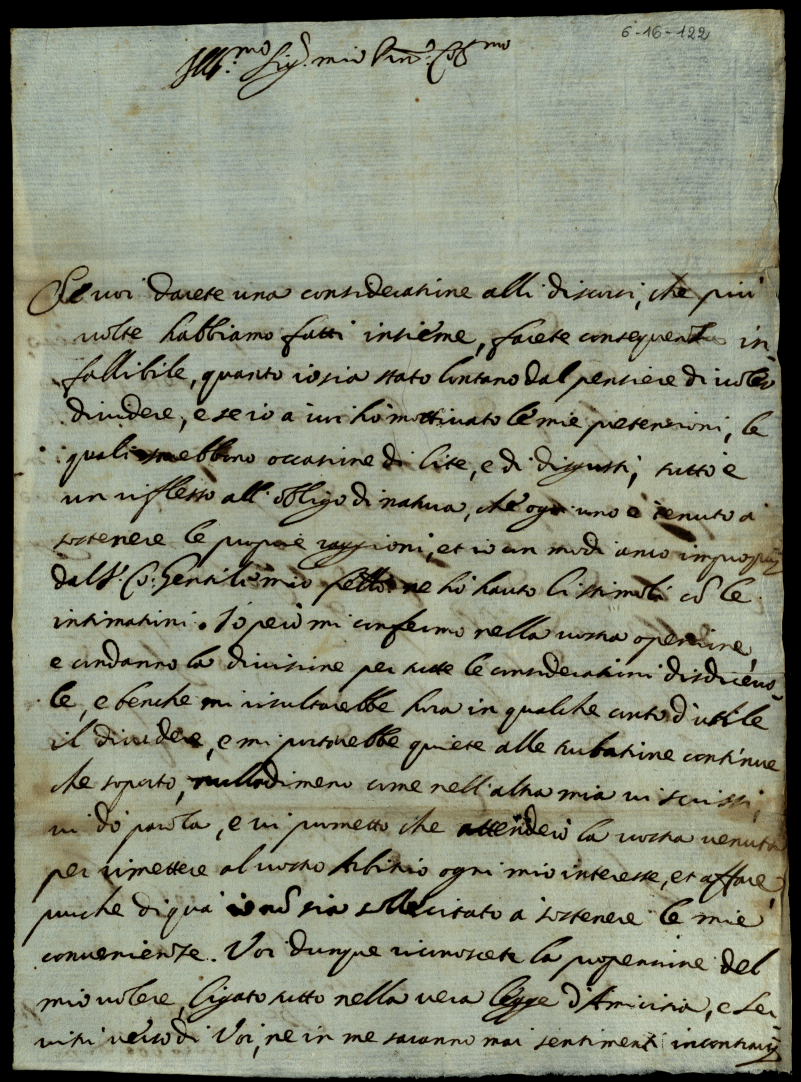 6-16-122
Ill.mo Sig.r mio Pron. Col.mo
Se voi darete una consideratione alli discorsi, che più
volte habbiamo fatti insieme, farete consequenza in-
fallibile, quanto io sia stato lontano dal pensiere di voler
dividere, e se io a voi hò mottivato le mie pretensioni, le
quali occasione di lite, e di disgusti, tutto è
un riflesso all'obligo di natura, che ogni uno è tenuto a
sostenere le proprie raggioni, et io in modi anco improprij
dal S.r Co: Gentil mio ne hò hauto li stimoli cõ le
intimationi. Io però mi confermo nella vostra openione,
e condanno la divisione per tutte le considerationi disdiceuo-
le, e benche mi risultarebbe hora in qualche conto d'utile
il dividere, e mi portarebbe quiete alle turbatione continue
che soporto, nulladimeno come nell'altra mia vi scrissi,
vi dò parola, e vi prometto che attenderò la vostra venuta
per rimettere al vostro Arbitrio ogni mio interesse, et affare,
purche di quà io nõ sia sollecitato à sostenere le mie
convenienze. Voi dunque riconoscete la propensione del
mio volere, ligato tutto nella vera legge d'Amicitia, e ser-
vitù verso di Voi, ne in me saranno mai sentimenti incontrarij